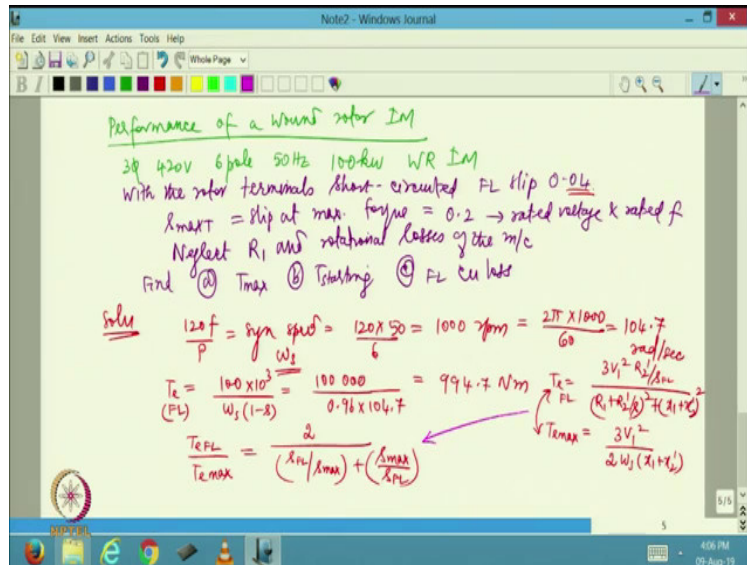 Note2 - Windows Journal
File Edit View Insert Actions Tools Help
Whole Page
B I
Performance of a wound rotor IM
3φ 420V 6 pole 50 Hz 100kW WR IM
With the rotor terminals short-circuited FL slip 0.04
SmaxT = slip at max. torque = 0.2 → rated voltage & rated f
Neglect R1 and rotational losses of the m/c
Find (a) Tmax (b) Tstarting (c) FL cu loss
Solu 120f/P = syn speed = 120×50/6 = 1000 rpm = 2π×1000/60 = 104.7 rad/sec
ωs
Te (FL) = 100×10³/ωs(1-s) = 100 000/0.96×104.7 = 994.7 Nm
Te FL = 3V1² R2'/sFL / (R1+R2'/s)²+(x1+x2')²
TeFL/Temax = 2/(sFL/smax)+(smax/sFL)
Temax = 3V1²/2ωs(x1+x2')
NPTEL
5/5
5
4:06 PM
09-Aug-19